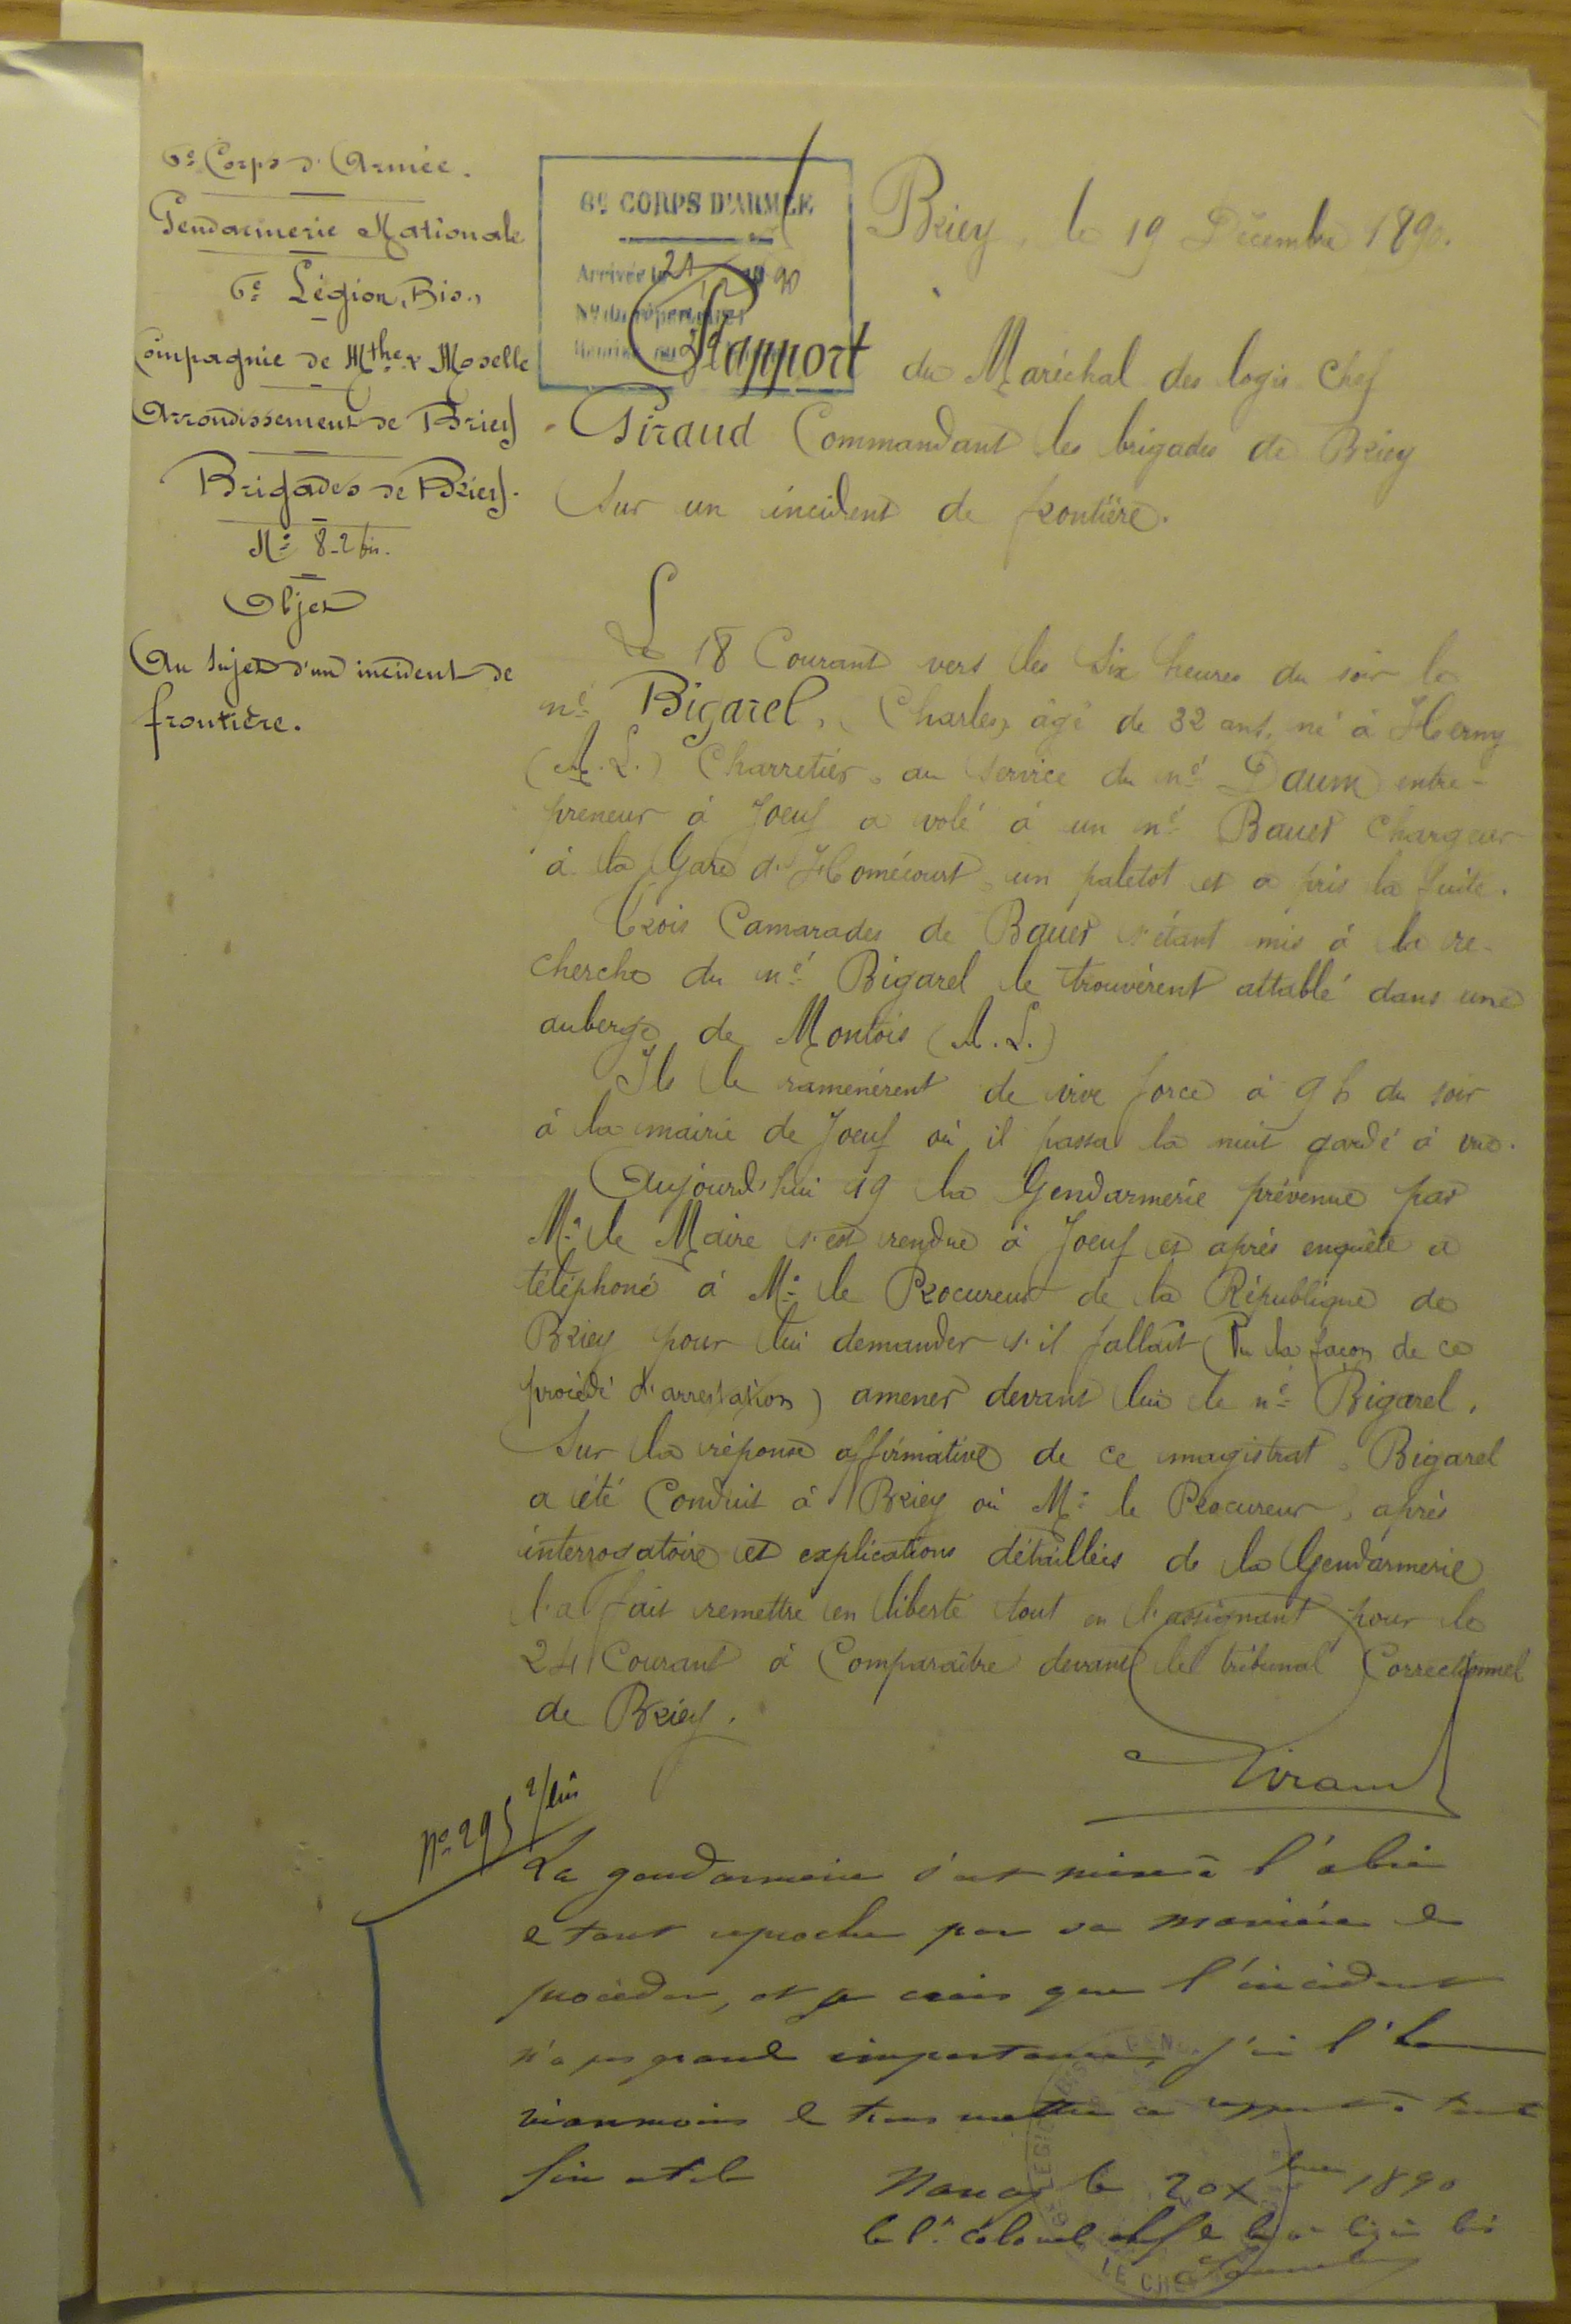 6e Corps d'Armée.
Gendarmerie Nationale
6e Légion, Bis.,
Compagnie de Mthe & Moselle
Arrondissement de Briey
Brigades de Briey.
No 8-2 bis.
Objet
Au sujet d'un incident de
frontière.
6e CORPS D'ARMÉE
Arrivée le 21 12 90
No du répertoire
Briey, le 19 Décembre 1890.
Rapport du Maréchal des logis Chef
Giraud Commandant les brigades de Briey
Sur un incident de frontière.
Le 18 Courant vers les Six heures du soir le
né Bigarel, Charles, âgé de 32 ans, né à Herny
(A. L.) Charretier, au service du né Daum entre-
preneur à Joeuf a volé à un né Bauer chargeur
à la Gare d'Homécourt, un paletot et a pris la fuite.
Trois Camarades de Bauer s'étant mis à la re-
cherche du né Bigarel le trouvèrent attablé dans une
auberge de Montois (A. L.)
Ils le ramenèrent de vive force à 9 h du soir
à la mairie de Joeuf où il passa la nuit gardé à vue.
Aujourd'hui 19 la Gendarmerie prévenue par
Mr le Maire s'est rendue à Joeuf et après enquête a
téléphoné à Mr le Procureur de la République de
Briey pour lui demander s'il fallait (Vu la façon de ce
procédé d'arrestation) amener devant lui le né Bigarel.
Sur la réponse affirmative de ce magistrat, Bigarel
a été Conduit à Briey où Mr le Procureur, après
interrogatoire et explications détaillées de la Gendarmerie
l'a fait remettre en liberté tout en l'assignant pour le
24 Courant à Comparaître devant le tribunal Correctionnel
de Briey.
Giraud
No 295 2/bis
La gendarmerie s'est mise à l'abri
de tout reproche par sa manière de
procéder, et je crois que l'incident
n'a pas grande importance, j'ai l'h
néanmoins de transmettre ce rapport à toute
fin utile
Nancy le 20 Xbre 1890
le Lt Colonel chef de la 6e légion bis
LE CHEF